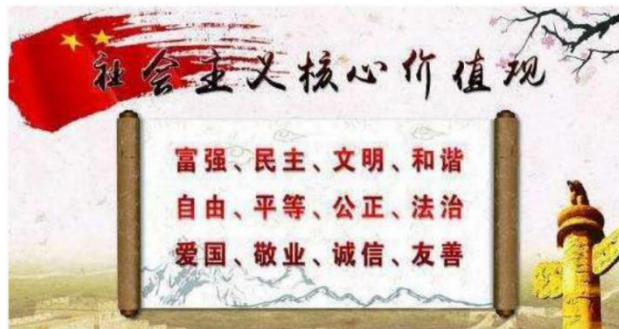 社会主义核心价值观
富强、民主、文明、和谐
自由、平等、公正、法治
爱国、敬业、诚信、友善